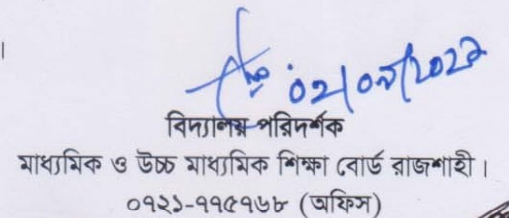 ।
বিদ্যালয় পরিদর্শক
মাধ্যমিক ও উচ্চ মাধ্যমিক শিক্ষা বোর্ড রাজশাহী।
০৭২১-৭৭৫৭৬৮ (অফিস)